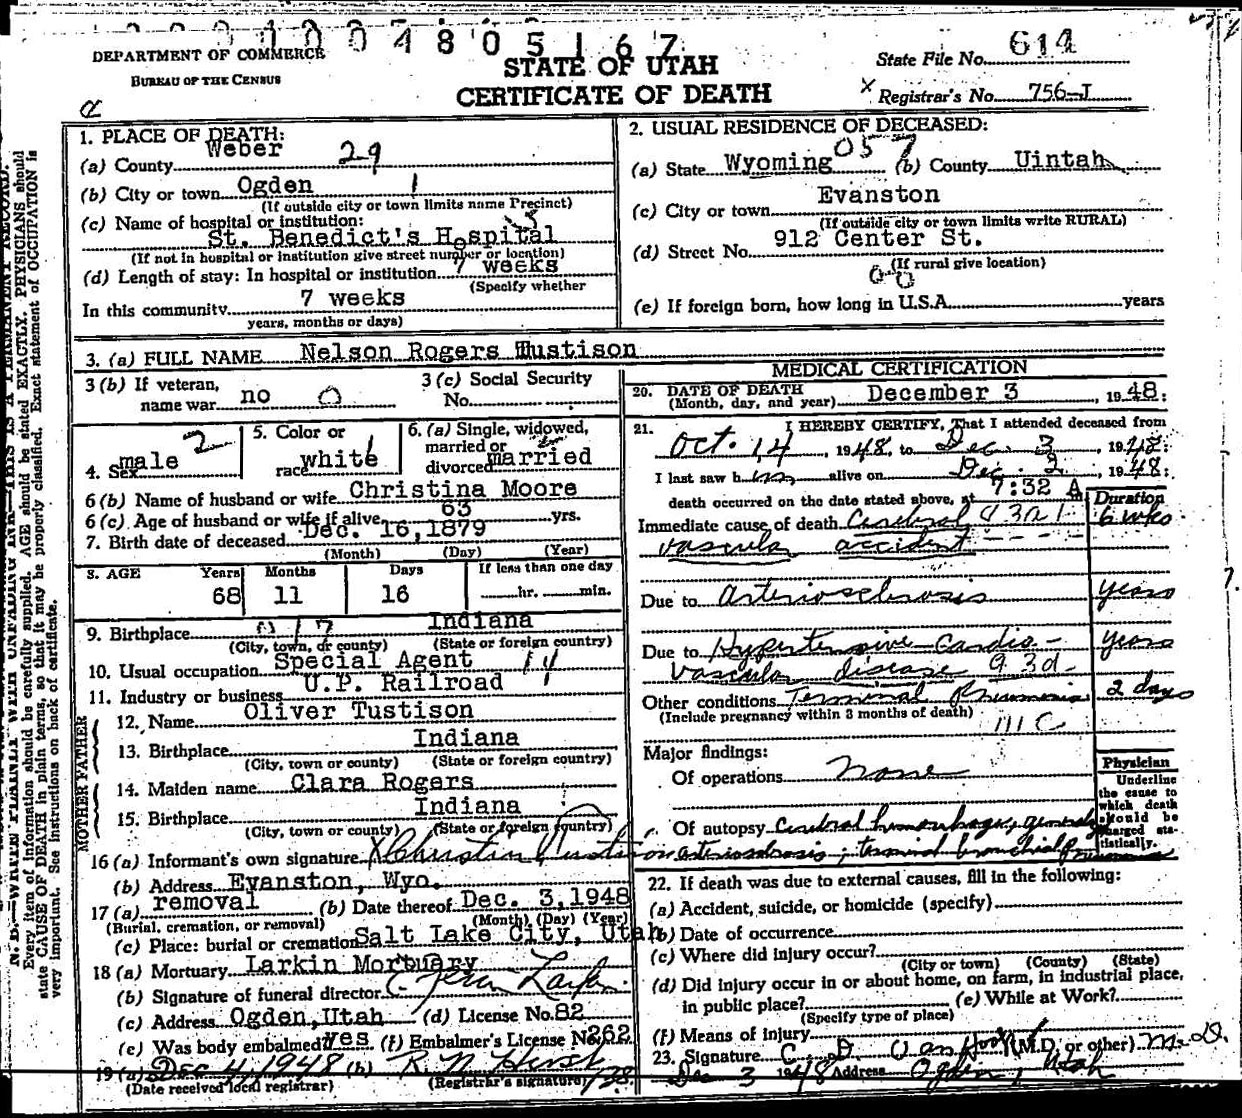 2 0 0 1 0 0 4 8 0 5 1 6 7
DEPARTMENT OF COMMERCE
BUREAU OF THE CENSUS
STATE OF UTAH
CERTIFICATE OF DEATH
State File No. 614
X Registrar's No. 756-J
1. PLACE OF DEATH:
(a) County Weber 29
(b) City or town Ogden 1
(If outside city or town limits name Precinct)
(c) Name of hospital or institution:
St. Benedict's Hospital
(If not in hospital or institution give street number or location)
(d) Length of stay: In hospital or institution 7 weeks
(Specify whether
In this community 7 weeks
years, months or days)
2. USUAL RESIDENCE OF DECEASED:
(a) State Wyoming 057 (b) County Uintah
(c) City or town Evanston
(If outside city or town limits write RURAL)
(d) Street No. 912 Center St.
(If rural give location)
(e) If foreign born, how long in U.S.A. years
3. (a) FULL NAME Nelson Rogers Tustison
3 (b) If veteran, name war no 0
3 (c) Social Security No.
4. Sex male 2
5. Color or race white 1
6. (a) Single, widowed, married or divorced married
6 (b) Name of husband or wife Christina Moore
6 (c) Age of husband or wife if alive 63 yrs.
7. Birth date of deceased Dec. 16, 1879
(Month) (Day) (Year)
8. AGE Years 68 Months 11 Days 16 If less than one day hr. min.
9. Birthplace Indiana
(City, town, or county) (State or foreign country)
10. Usual occupation Special Agent 14
11. Industry or business U.P. Railroad
FATHER
12. Name Oliver Tustison
13. Birthplace Indiana
(City, town or county) (State or foreign country)
MOTHER
14. Maiden name Clara Rogers
15. Birthplace Indiana
(City, town or county) (State or foreign country)
16 (a) Informant's own signature X Christina Tustison
(b) Address Evanston, Wyo.
17 (a) removal (b) Date thereof Dec. 3, 1948
(Burial, cremation, or removal) (Month) (Day) (Year)
(c) Place: burial or cremation Salt Lake City, Utah
18 (a) Mortuary Larkin Mortuary
(b) Signature of funeral director Larkin
(c) Address Ogden, Utah (d) License No. 82
(e) Was body embalmed? Yes (f) Embalmer's License No. 262
19 (a) Dec 4, 1948 (b) R N Hirst
(Date received local registrar) (Registrar's signature)
MEDICAL CERTIFICATION
20. DATE OF DEATH December 3, 1948
(Month, day, and year)
21. I HEREBY CERTIFY, That I attended deceased from
Oct. 14, 1948, to Dec. 3, 1948:
I last saw him alive on Dec. 3, 1948:
death occurred on the date stated above, at 7:32 A
Duration
Immediate cause of death Cerebral 6 wks.
vascular accident
Due to arteriosclerosis years
Due to Hypertensive Cardio- years
vascular disease 93d
Other conditions Terminal Pneumonia 2 days
(Include pregnancy within 3 months of death)
Major findings:
Of operations none
Of autopsy Cerebral hemorrhage, general
arteriosclerosis; terminal bronchial Pneumonia
Physician
Underline the cause to which death should be charged statistically.
22. If death was due to external causes, fill in the following:
(a) Accident, suicide, or homicide (specify)
(b) Date of occurrence
(c) Where did injury occur?
(City or town) (County) (State)
(d) Did injury occur in or about home, on farm, in industrial place, in public place? (e) While at Work?
(Specify type of place)
(f) Means of injury
23. Signature C. D. Van Hook (M.D. or other) M.D.
Dec 3 1948 Address Ogden, Utah
N. B.—WRITE PLAINLY WITH UNFADING INK—THIS IS A PERMANENT RECORD.
Every item of information should be carefully supplied. AGE should be stated EXACTLY. PHYSICIANS should
state CAUSE OF DEATH in plain terms, so that it may be properly classified. Exact statement of OCCUPATION is
very important. See instructions on back of certificate.